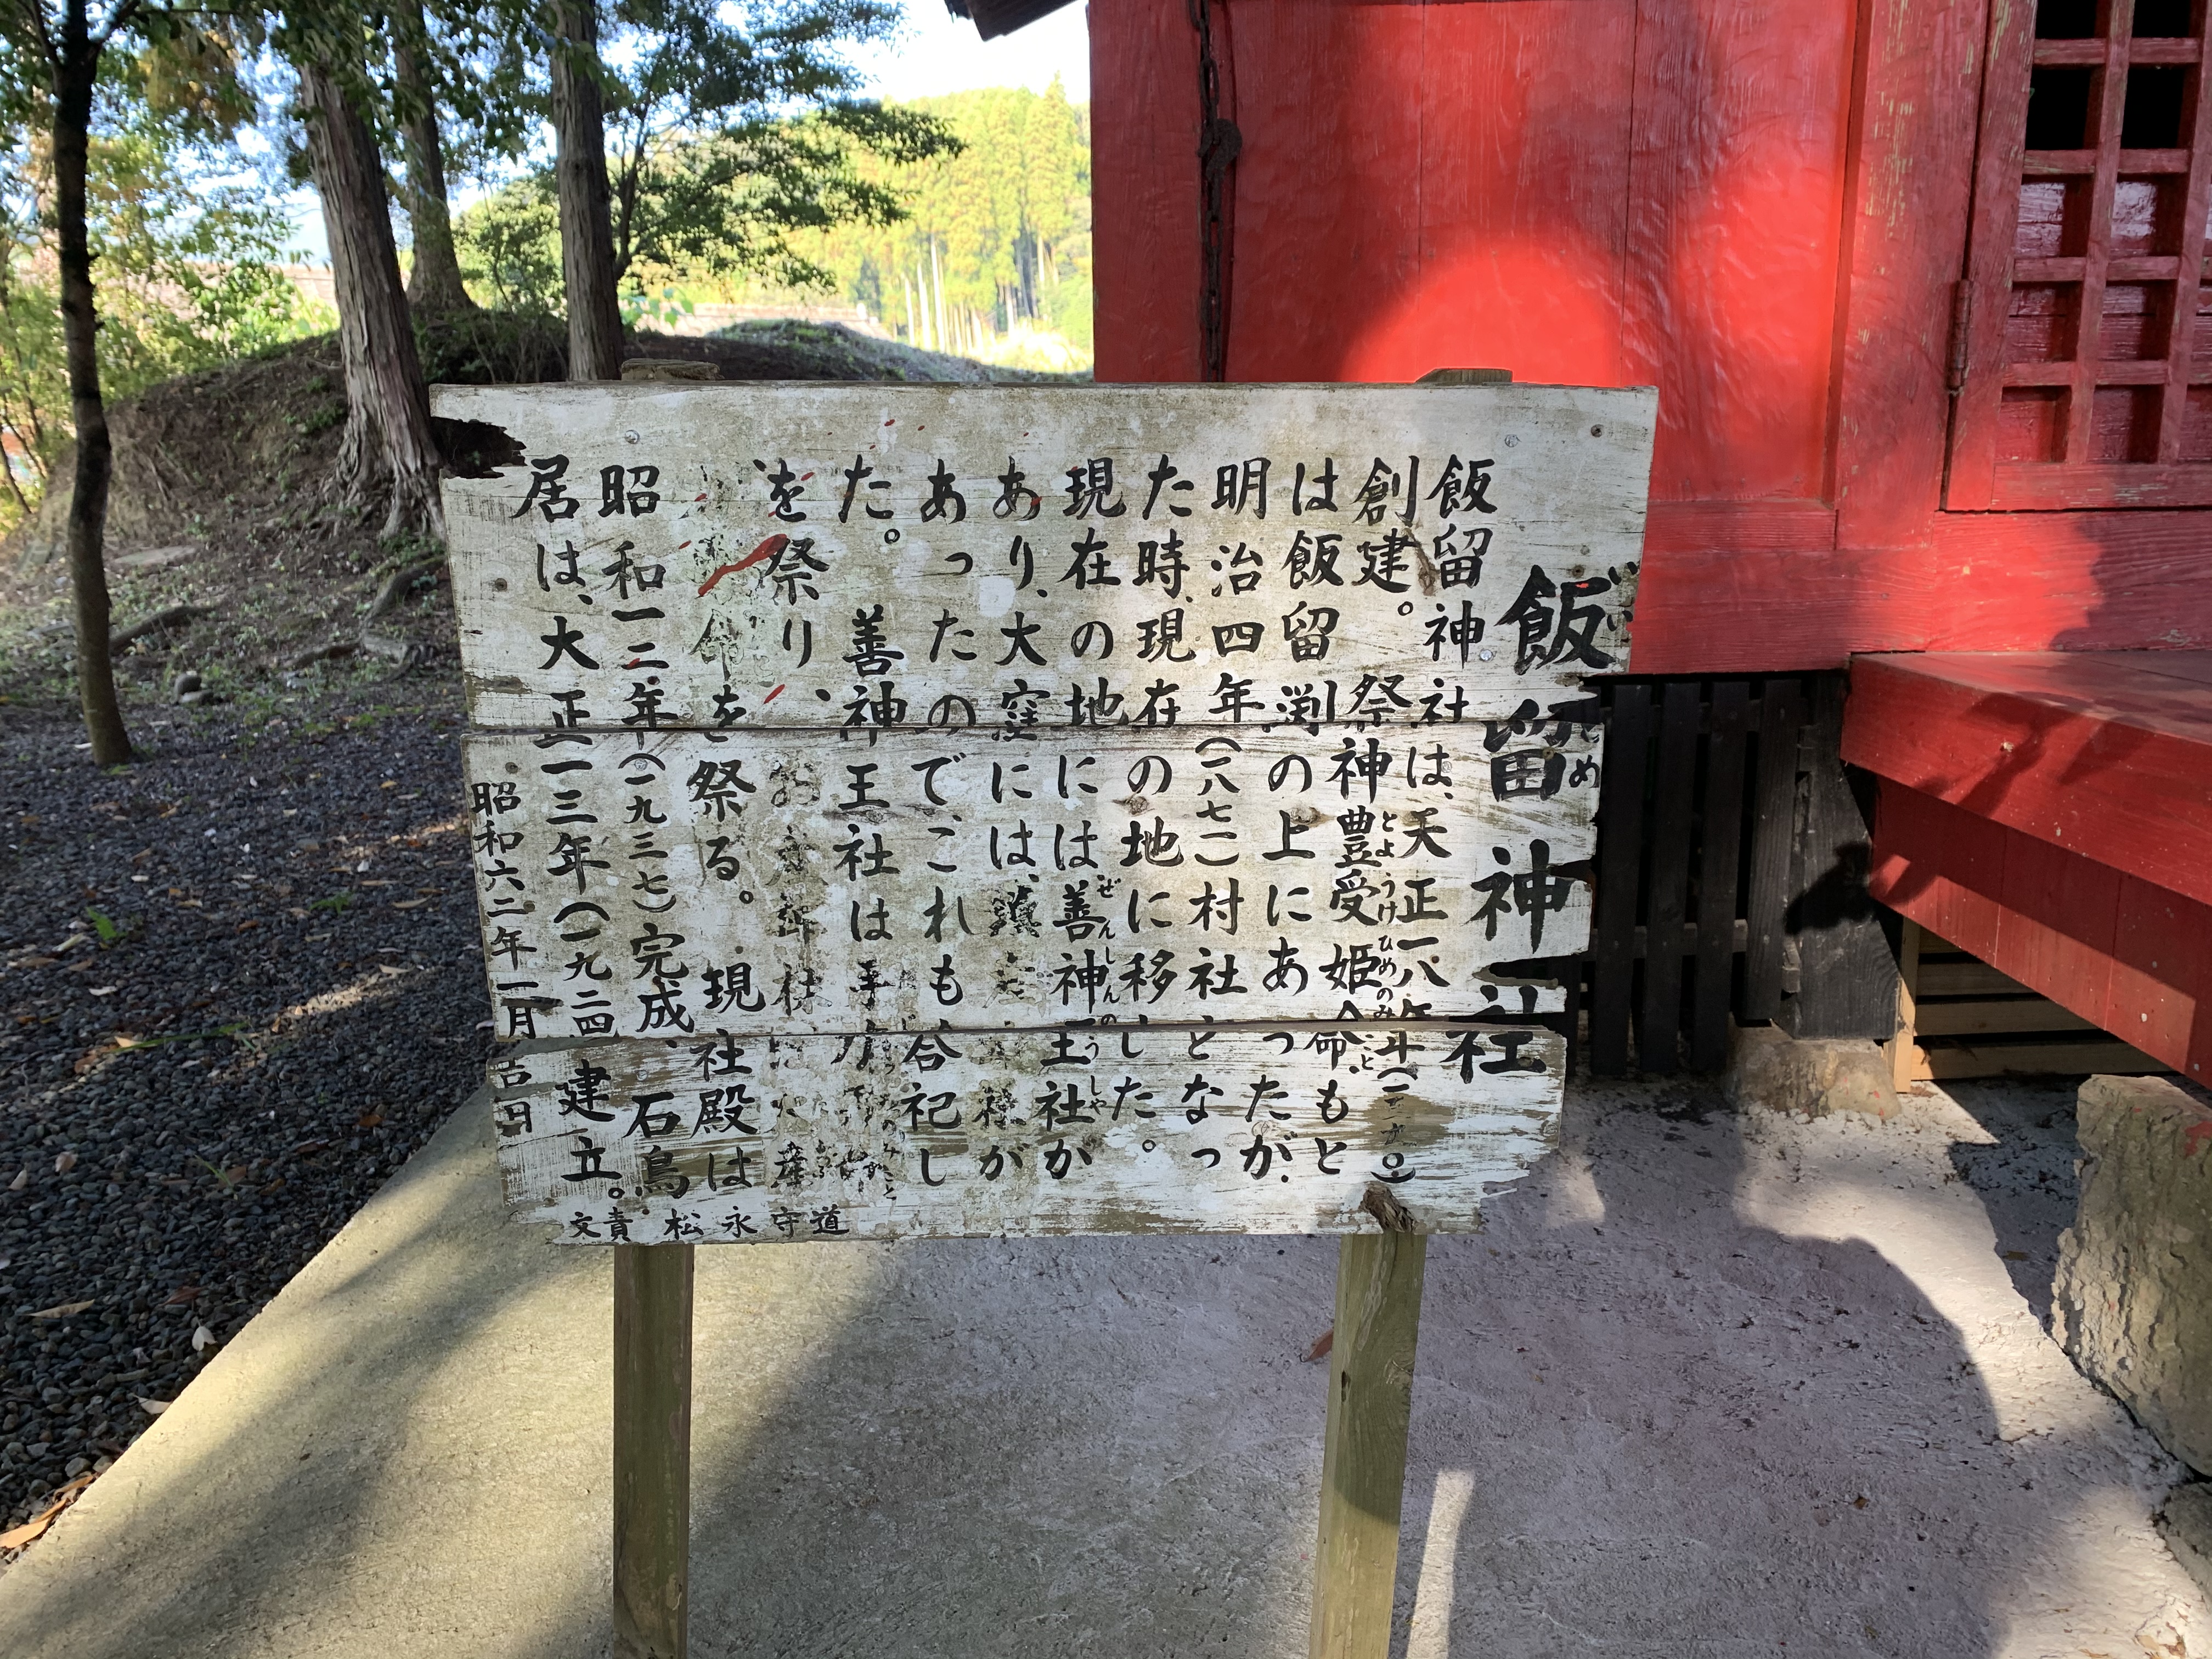 飯留神社
飯留神社は、天正一八年(一五九〇)
創建。祭神豊受姫命、もと
は飯留渕の上にあったが、
明治四年(一八七一)村社となっ
た時、現在の地に移した。
現在の地には善神王社が
あり、大窪には、様が
あったのでこれも合祀し
た。善神王社は手力
を祭り、社は火産
命を祭る。現社殿は
昭和一二年(一九三七)完成、石鳥
居は、大正一三年(一九二四)建立。
昭和六二年一月吉日
文責 松永守道